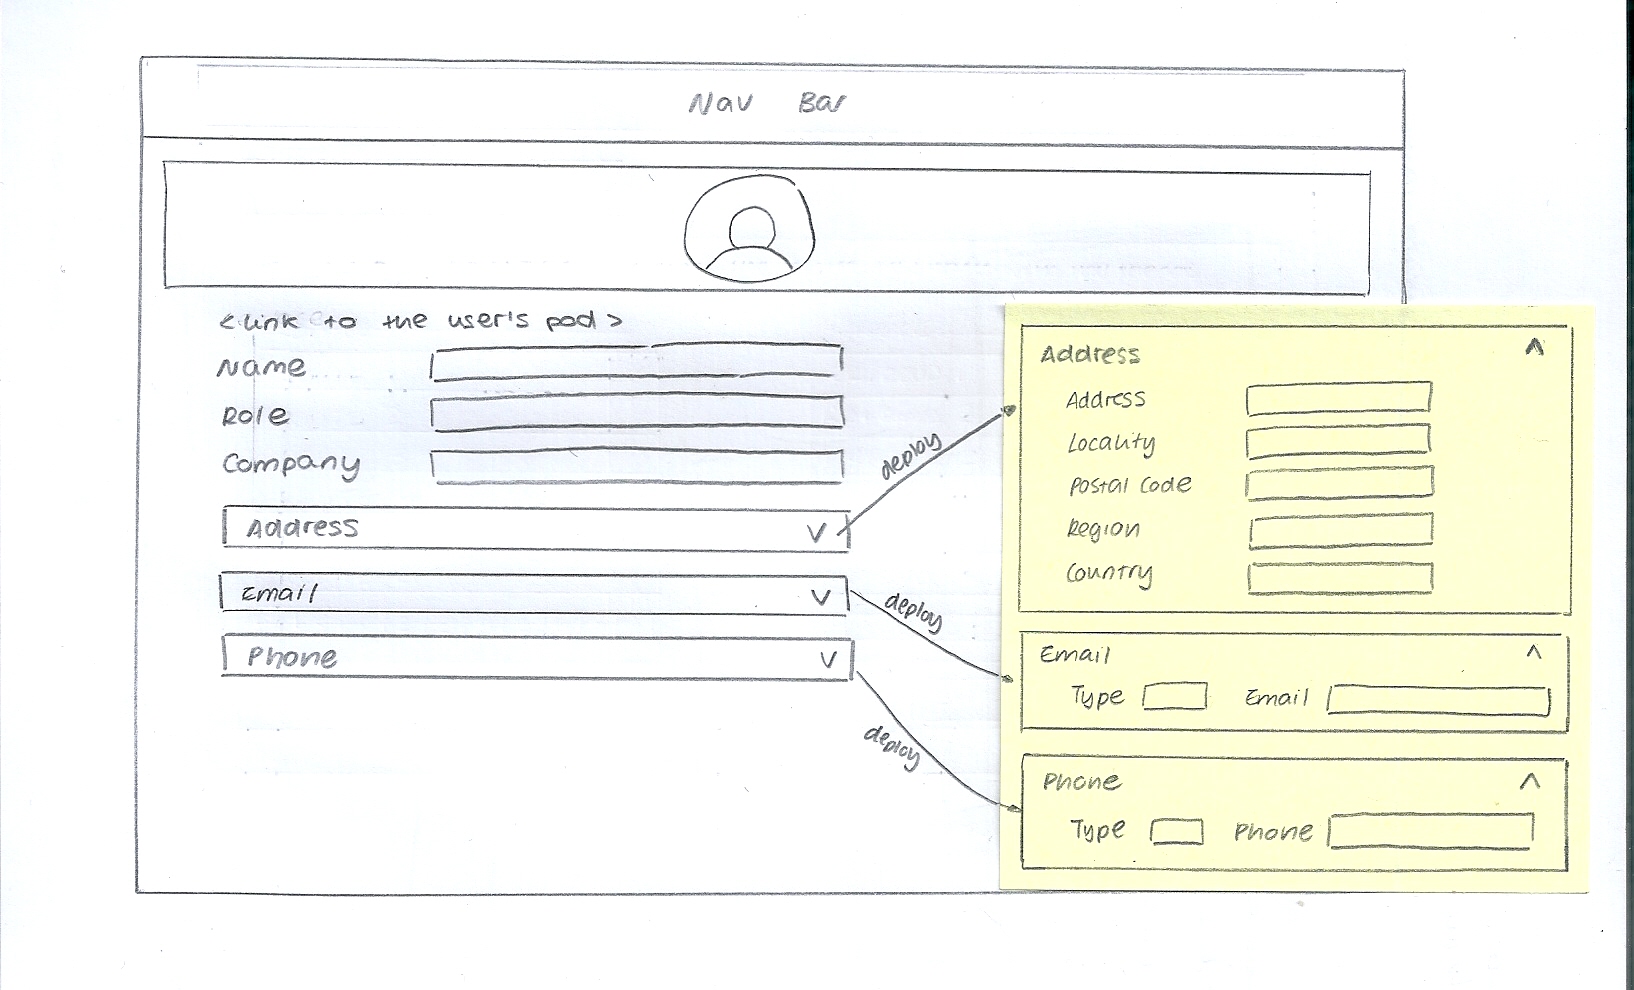 Nav Bar
<link to the user's pod>
Name
Role
Company
Address
Email
Phone
deploy
deploy
deploy
Address
Address
Locality
Postal Code
Region
Country
Email
Type Email
Phone
Type Phone